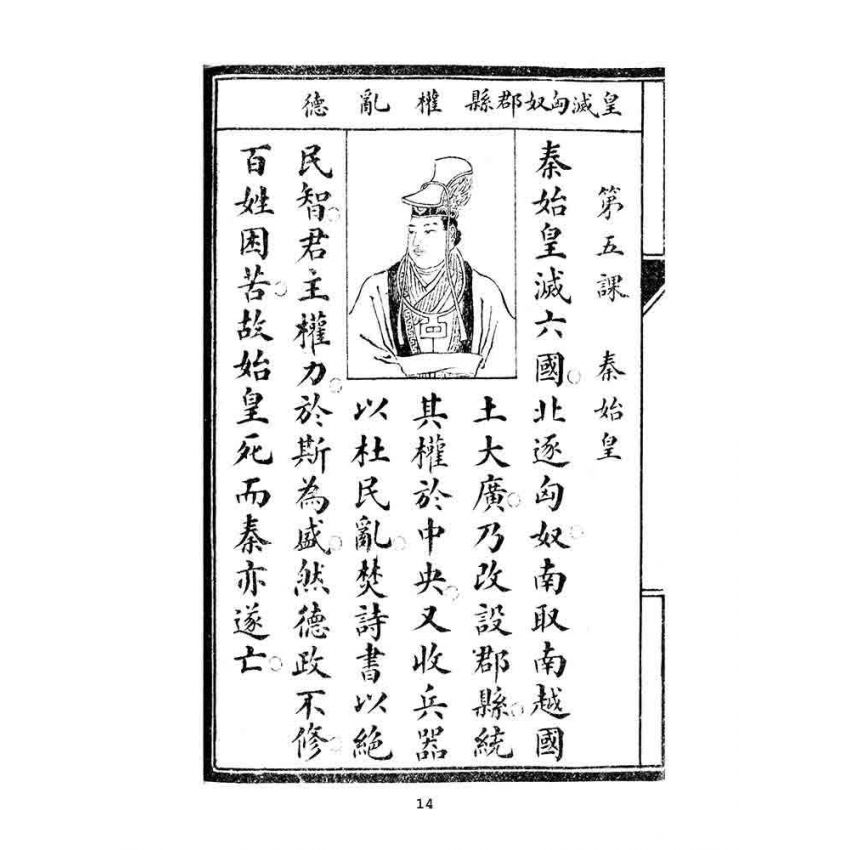 皇滅匈奴郡縣權亂德
第五課 秦始皇
秦始皇滅六國。北逐匈奴。南取南越國
土大廣。乃改設郡縣。統
其權於中央。又收兵器
以杜民亂。焚詩書以絕
民智。君主權力。於斯為盛。然德政不修。
百姓困苦。故始皇死而秦亦遂亡。
14